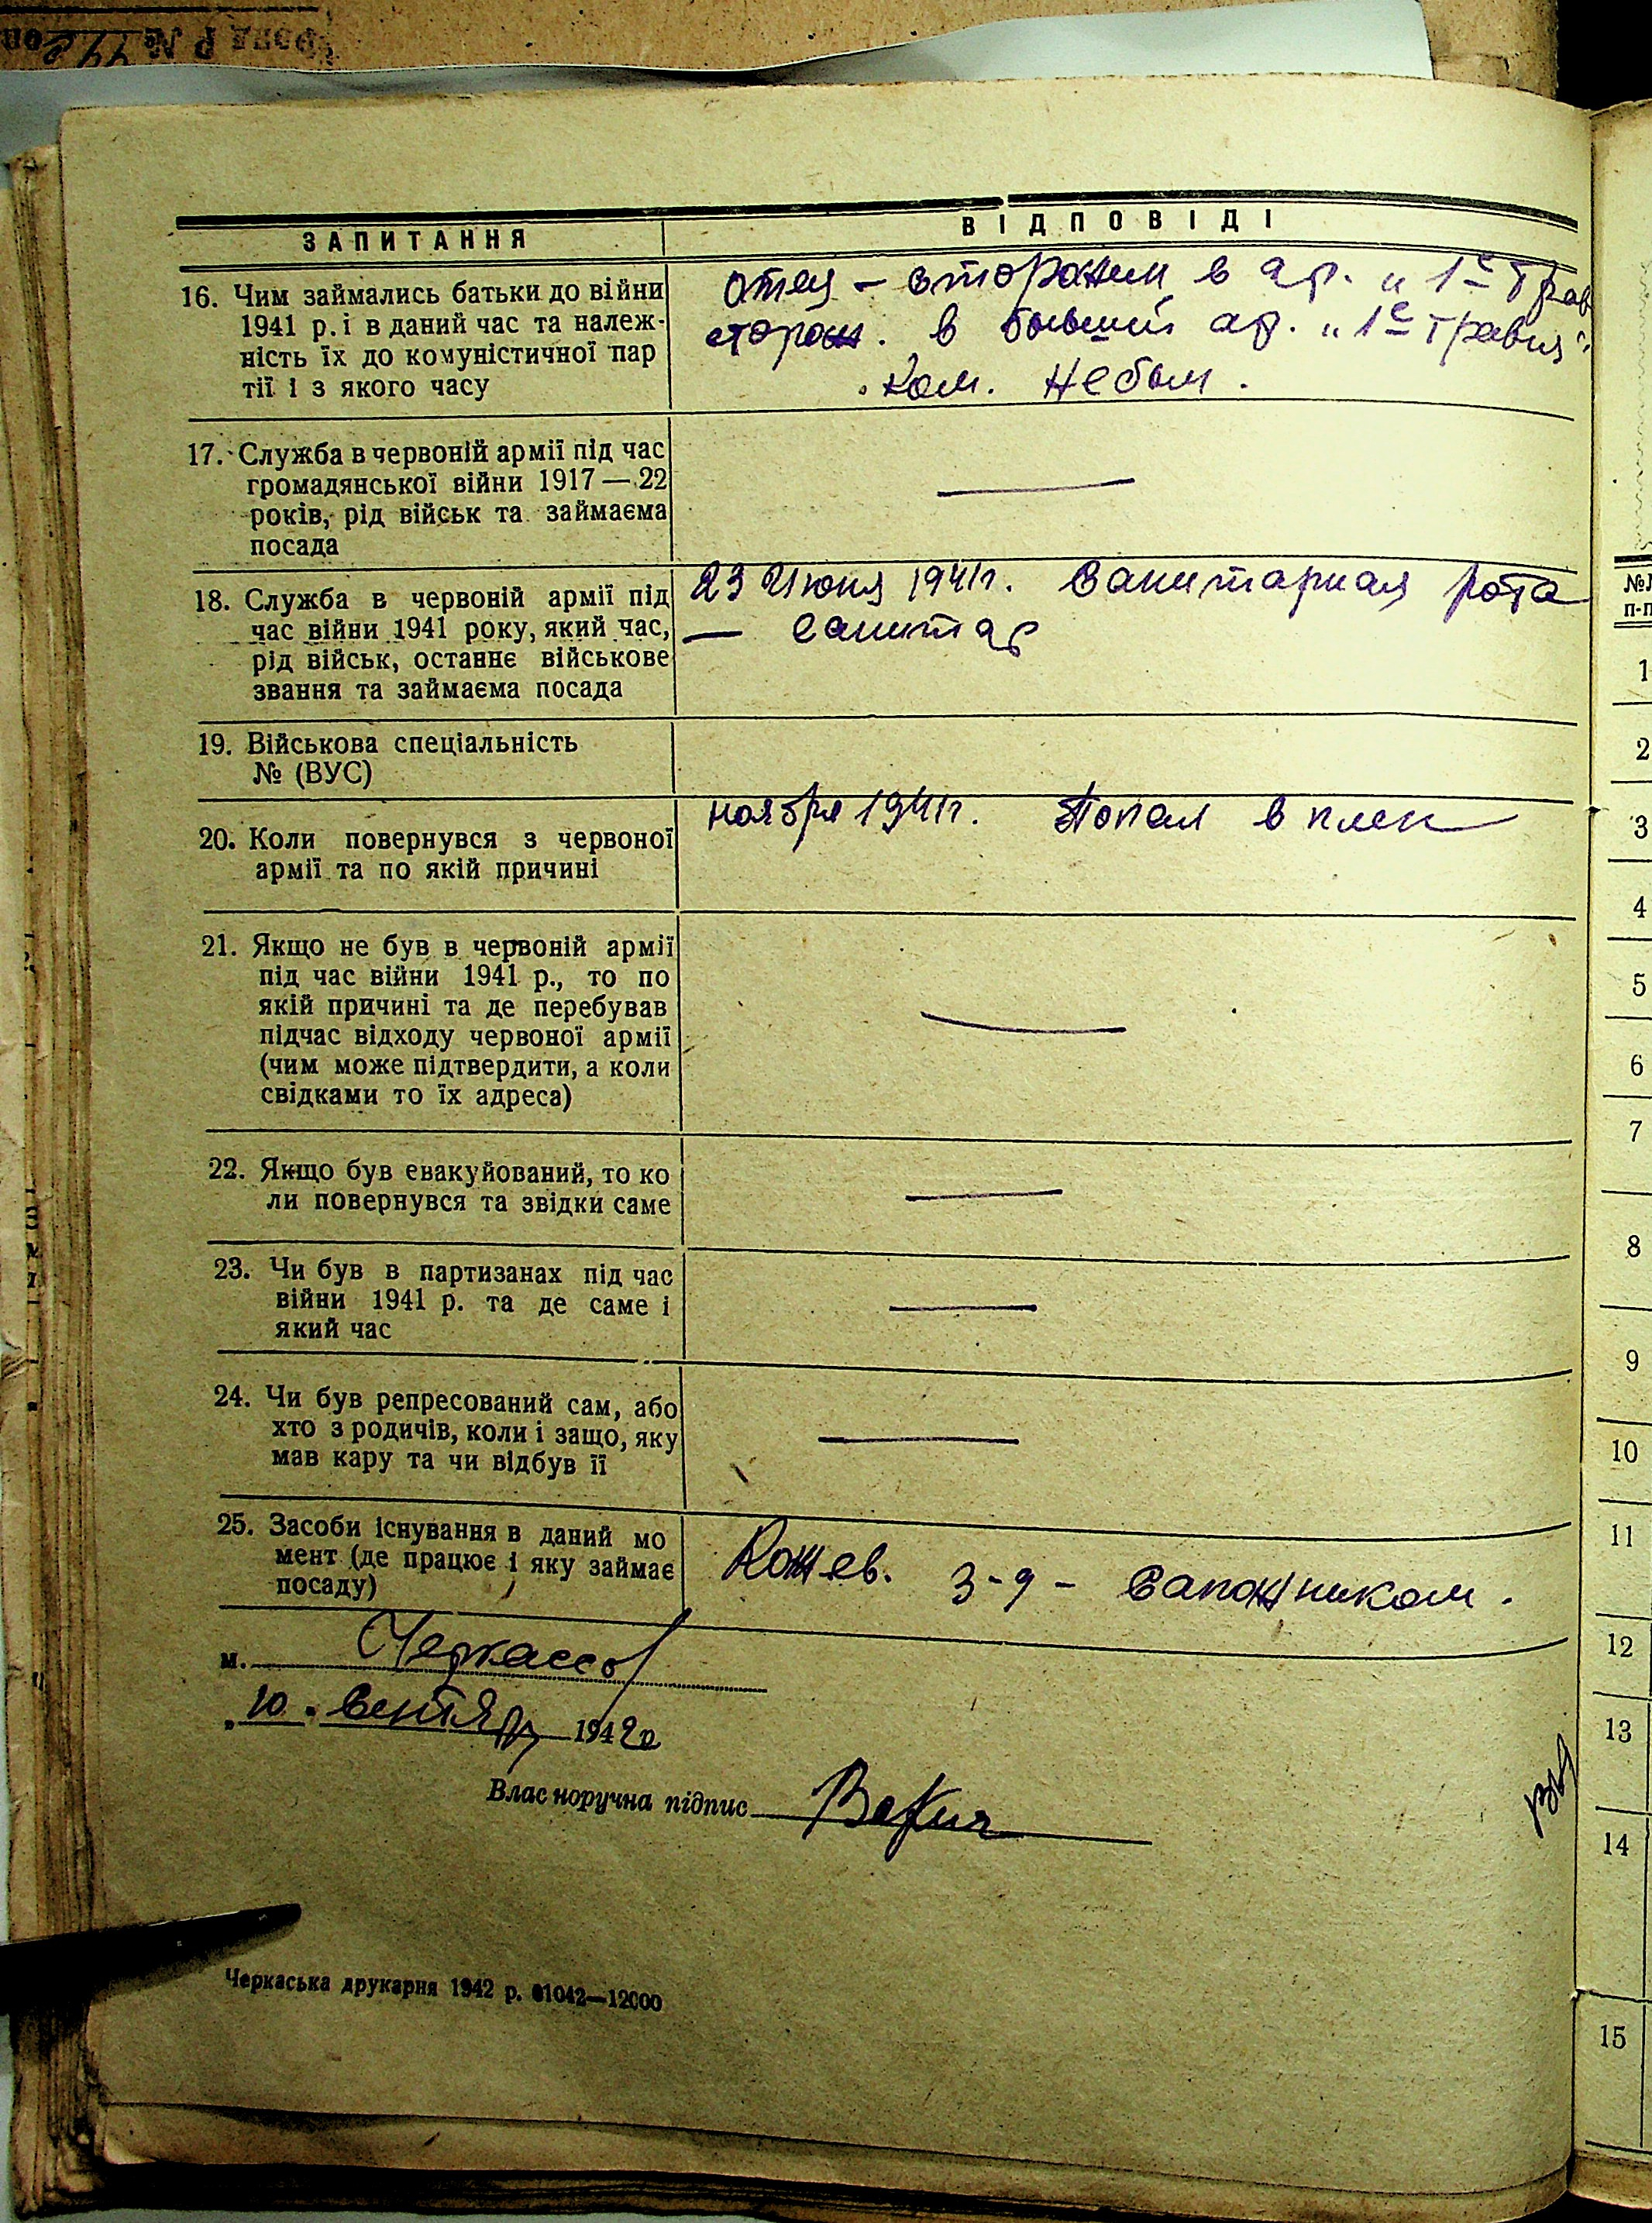 ЗАПИТАННЯ
ВІДПОВІДІ
16. Чим займались батьки до війни
1941 р. і в даний час та належ-
ність їх до комуністичної пар
тії і з якого часу
отец - сторожем в ар. „1е Трав
сторож. в бывший ар. „1е Травня"
Ком. не был.
17. Служба в червоній армії під час
громадянської війни 1917—22
років, рід військ та займаєма
посада
—
18. Служба в червоній армії під
час війни 1941 року, який час,
рід військ, останнє військове
звання та займаєма посада
23 Июня 1941г. Санитарная рота
— санитар
19. Військова спеціальність
№ (ВУС)
20. Коли повернувся з червоної
армії та по якій причині
ноября 1941г. Попал в плен
21. Якщо не був в червоній армії
під час війни 1941 р., то по
якій причині та де перебував
підчас відходу червоної армії
(чим може підтвердити, а коли
свідками то їх адреса)
—
22. Якщо був евакуйований, то ко
ли повернувся та звідки саме
—
23. Чи був в партизанах під час
війни 1941 р. та де саме і
який час
—
24. Чи був репресований сам, або
хто з родичів, коли і защо, яку
мав кару та чи відбув її
—
25. Засоби існування в даний мо
мент (де працює і яку займає
посаду)
Кожев. з-д - Сапожником.
м. Черкассы
„10" Сентяб 1942р.
Власноручна підпис
Черкаська друкарня 1942 р. 01042—12000
№№
п-п
1
2
3
4
5
6
7
8
9
10
11
12
13
14
15